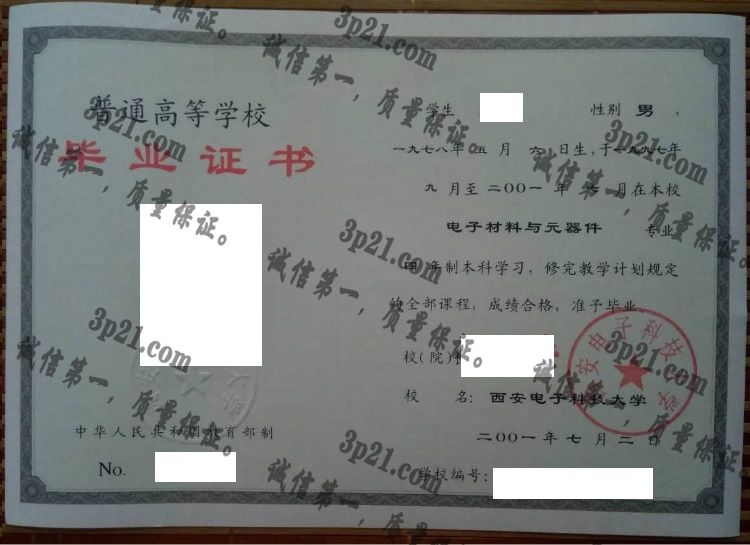 普通高等学校
毕业证书
中华人民共和国教育部制
No.
学生 性别 男 ,
一九七八年 五 月 六 日生,于一九九七年
九 月至 二〇〇一 年 七 月在本校
电子材料与元器件 专业
四 年制本科学习,修完教学计划规定
的全部课程,成绩合格,准予毕业。
校(院)长
校 名: 西安电子科技大学
二〇〇一 年 七 月 二 日
学校编号:
西安电子科技大学
3p21.com
诚信第一,质量保证。
3p21.com
诚信第一,质量保证。
3p21.com
诚信第一,质量保证。
3p21.com
诚信第一,质量保证。
3p21.com
诚信第一,质量保证。
3p21.com
诚信第一,质量保证。
3p21.com
诚信第一,质量保证。